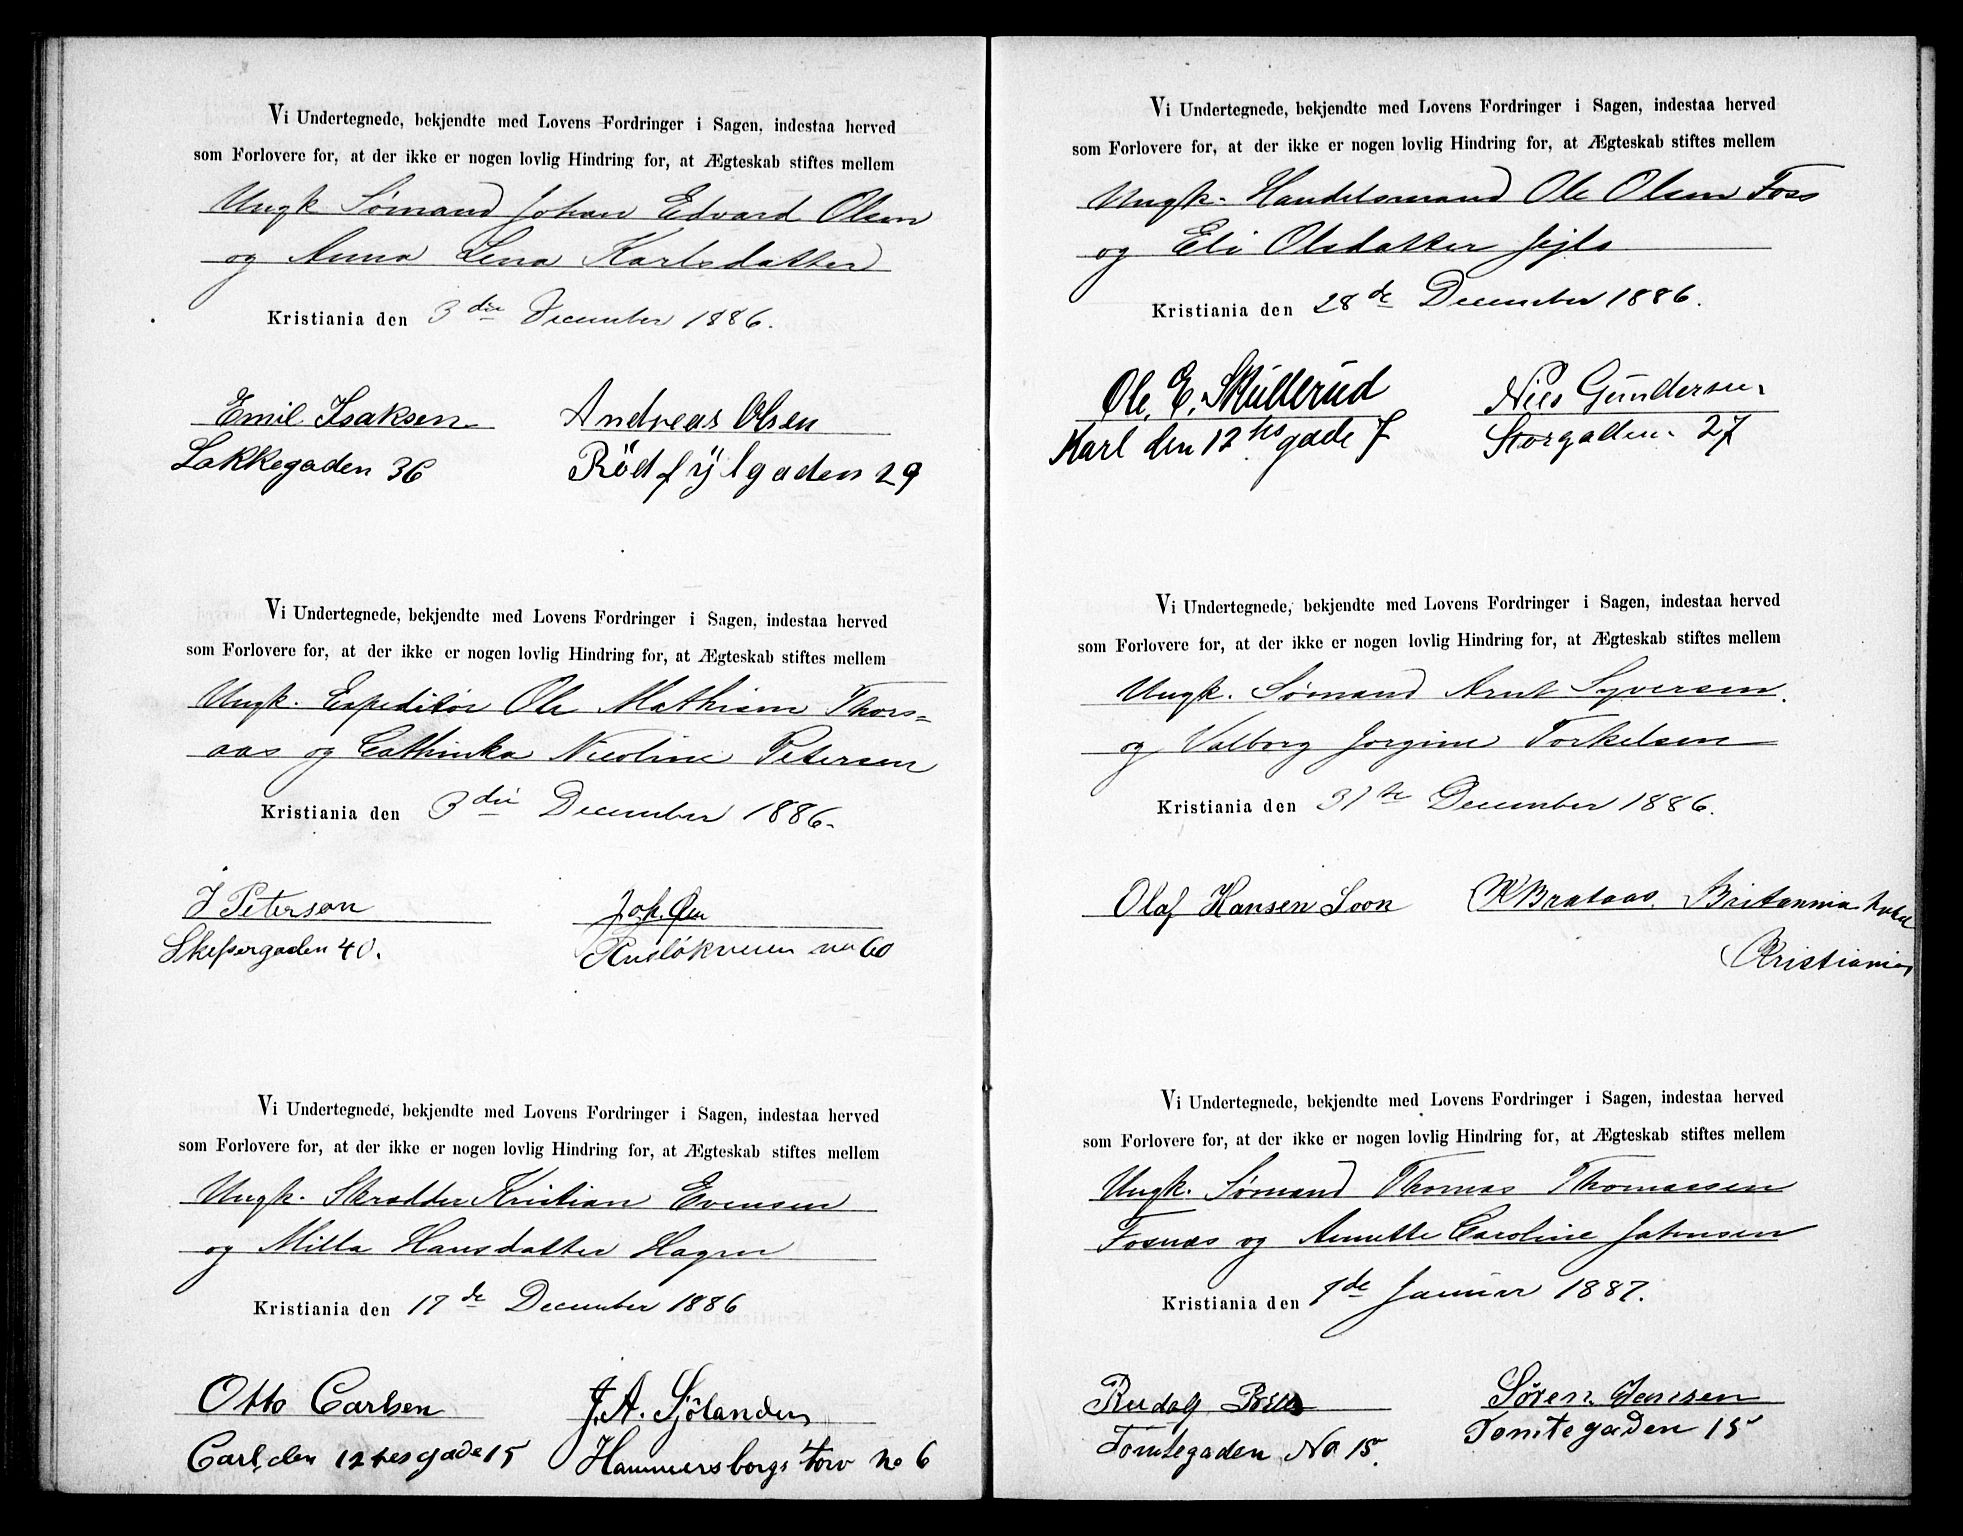 Vi Undertegnede, bekjendte med Lovens Fordringer i Sagen, indestaa herved
som Forlovere for, at der ikke er nogen lovlig Hindring for, at Ægteskab stiftes mellem
Ungk Sømand Johan Edvard Olsen
og Anna Lena Karlsdatter
Kristiania den 3die December 1886.
Emil Isaksen Andreas Olsen
Lakkegaden 36 Rödfylgaden 29
Vi Undertegnede, bekjendte med Lovens Fordringer i Sagen, indestaa herved
som Forlovere for, at der ikke er nogen lovlig Hindring for, at Ægteskab stiftes mellem
Ungk. Expeditør Ole Mathisen Thors=
aas og Cathinka Nicoline Petersen
Kristiania den 3die December 1886.
J Peterson Joh.
Skippergaden 40. no 60
Vi Undertegnede, bekjendte med Lovens Fordringer i Sagen, indestaa herved
som Forlovere for, at der ikke er nogen lovlig Hindring for, at Ægteskab stiftes mellem
Ungk. Skrædder Kristian Evensen
og Milla Hansdatter Hagen
Kristiania den 17de December 1886
Otto Carlsen J. A. Sjölander
Carl den 12tes gade 15 Hammersborgs torv no 6
Vi Undertegnede, bekjendte med Lovens Fordringer i Sagen, indestaa herved
som Forlovere for, at der ikke er nogen lovlig Hindring for, at Ægteskab stiftes mellem
Ungk. Handelsmand Ole Olsen Foss
og Eli Olsdatter
Kristiania den 28de December 1886.
Ole. E. Skullerud Nils Gundersen
Karl den 12tes gade 7 Storgatten. 27
Vi Undertegnede, bekjendte med Lovens Fordringer i Sagen, indestaa herved
som Forlovere for, at der ikke er nogen lovlig Hindring for, at Ægteskab stiftes mellem
Ungk. Sømand Arnt Syversen.
og Valborg Jorgine Torkelsen
Kristiania den 31te December 1886.
Olaf Hansen Soon Brataas. Britannia hotel
Kristiania
Vi Undertegnede, bekjendte med Lovens Fordringer i Sagen, indestaa herved
som Forlovere for, at der ikke er nogen lovlig Hindring for, at Ægteskab stiftes mellem
Ungk. Sømand Thomas Thomassen
Fosnæs og Annette Caroline Johnsen
Kristiania den 7de Januar 1887.
Rudolf Sören Jansen
Tomtegaden No 15. Tomtegaden 15